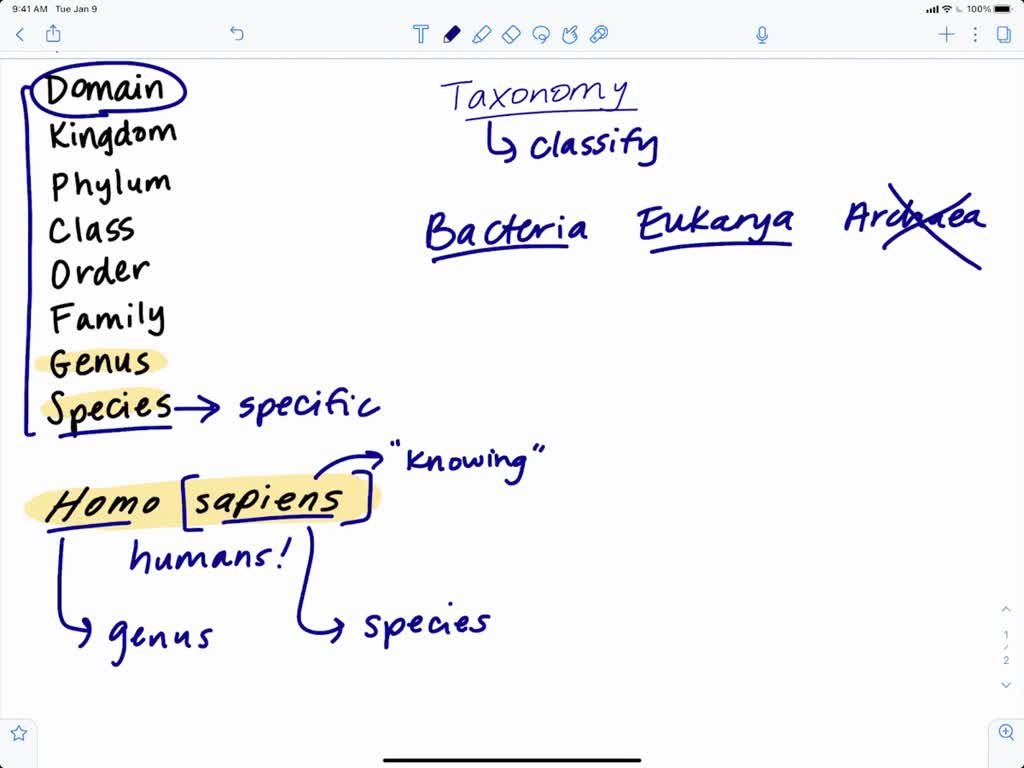 9:41 AM Tue Jan 9
100%
T
Domain
Kingdom
Phylum
Class
Order
Family
Genus
Species → specific
Taxonomy
↳ classify
Bacteria Eukarya Archaea
"knowing"
Homo [sapiens]
humans!
genus
species
1
/
2